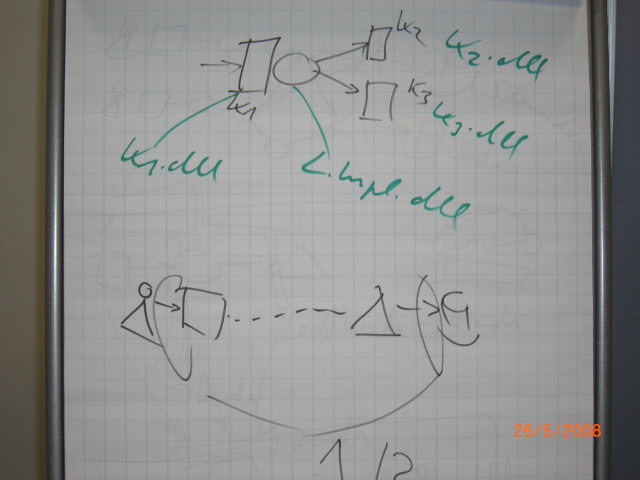 K2
K2.dll
K3
K3.dll
K1
K1.dll
L.Impl.dll
1/2
26/5/2008